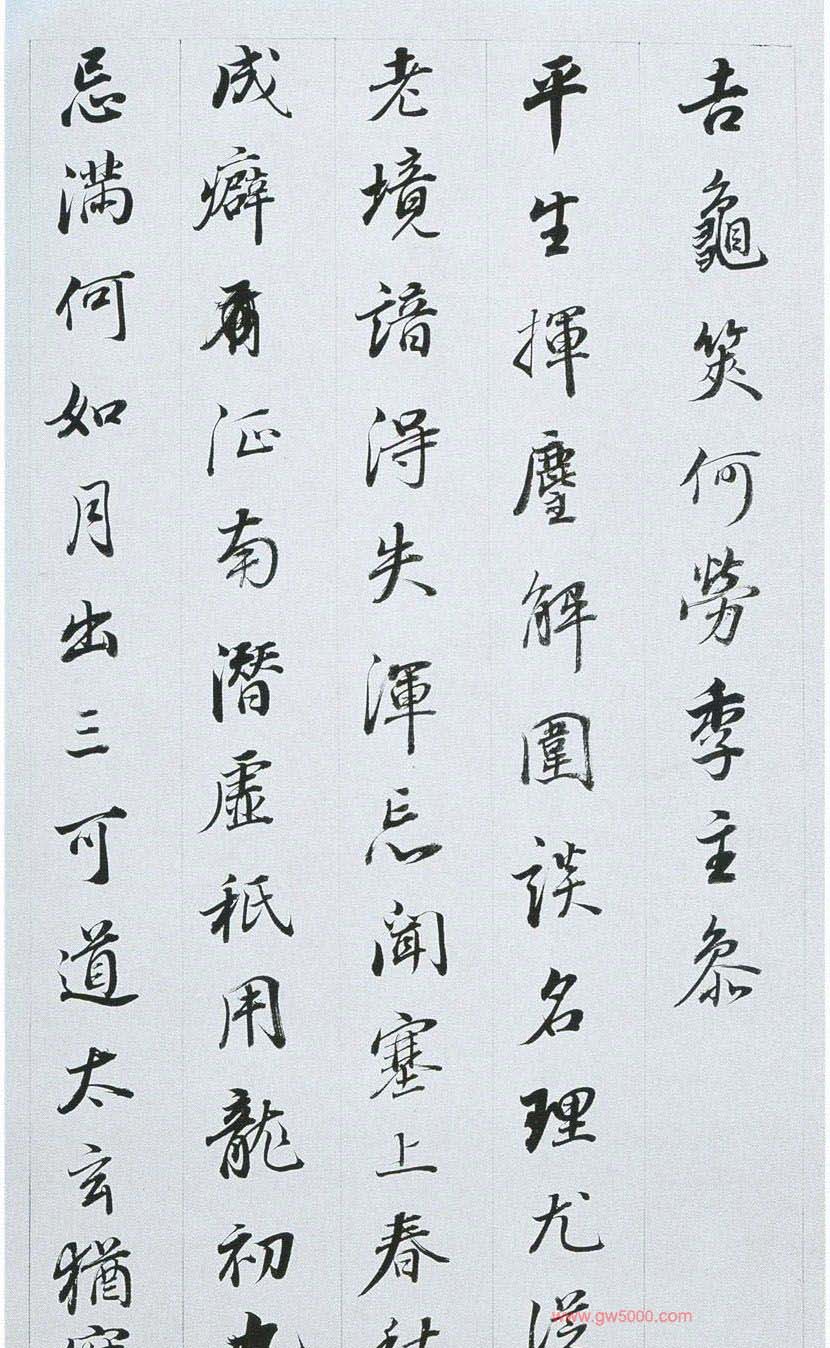 吉龜筴何勞季主叅
平生揮麈解圍談名理尤從
老境諳得失渾忘聞塞上春秋
成癖有征南潛虛秖用龍初九
忌滿何如月出三可道太玄猶
www.gw5000.com